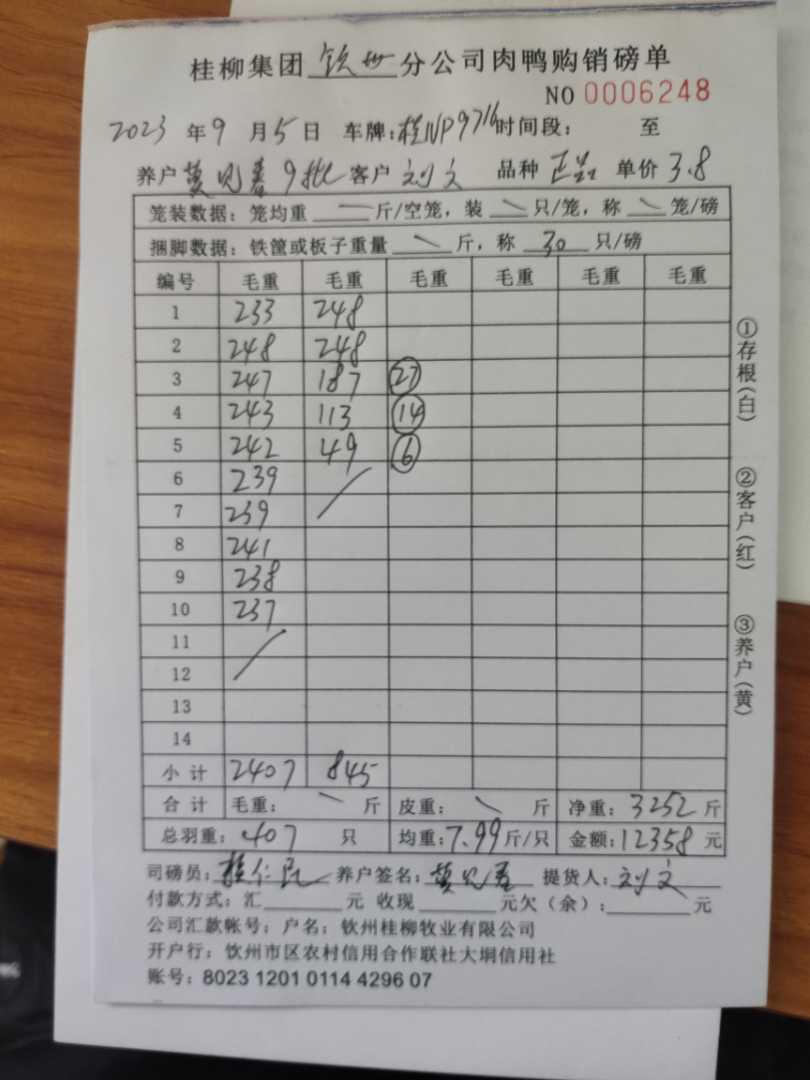 桂柳集团 钦州 分公司肉鸭购销磅单
NO 0006248
2023 年 9 月 5 日 车牌:桂NP9716 时间段: 至
养户 黄 9批 客户 刘文 品种 正品 单价 3.8
笼装数据: 笼均重 — 斤/空笼, 装 \ 只/笼, 称 \ 笼/磅
捆脚数据: 铁筐或板子重量 \ 斤, 称 30 只/磅
编号 毛重 毛重 毛重 毛重 毛重 毛重
1 233 248
2 248 248
3 247 187 27
4 243 113 14
5 242 49 6
6 239 /
7 239
8 241
9 238
10 237
11 /
12
13
14
小计 2407 845
合计 毛重: \ 斤 皮重: \ 斤 净重: 3252 斤
总羽重: 407 只 均重: 7.99 斤/只 金额: 12358 元
司磅员: 养户签名: 黄 提货人: 刘文
付款方式: 汇 元 收现 元欠(余): 元
公司汇款帐号: 户名: 钦州桂柳牧业有限公司
开户行: 钦州市区农村信用合作联社大垌信用社
账号: 8023 1201 0114 4296 07
①存根(白)
②客户(红)
③养户(黄)